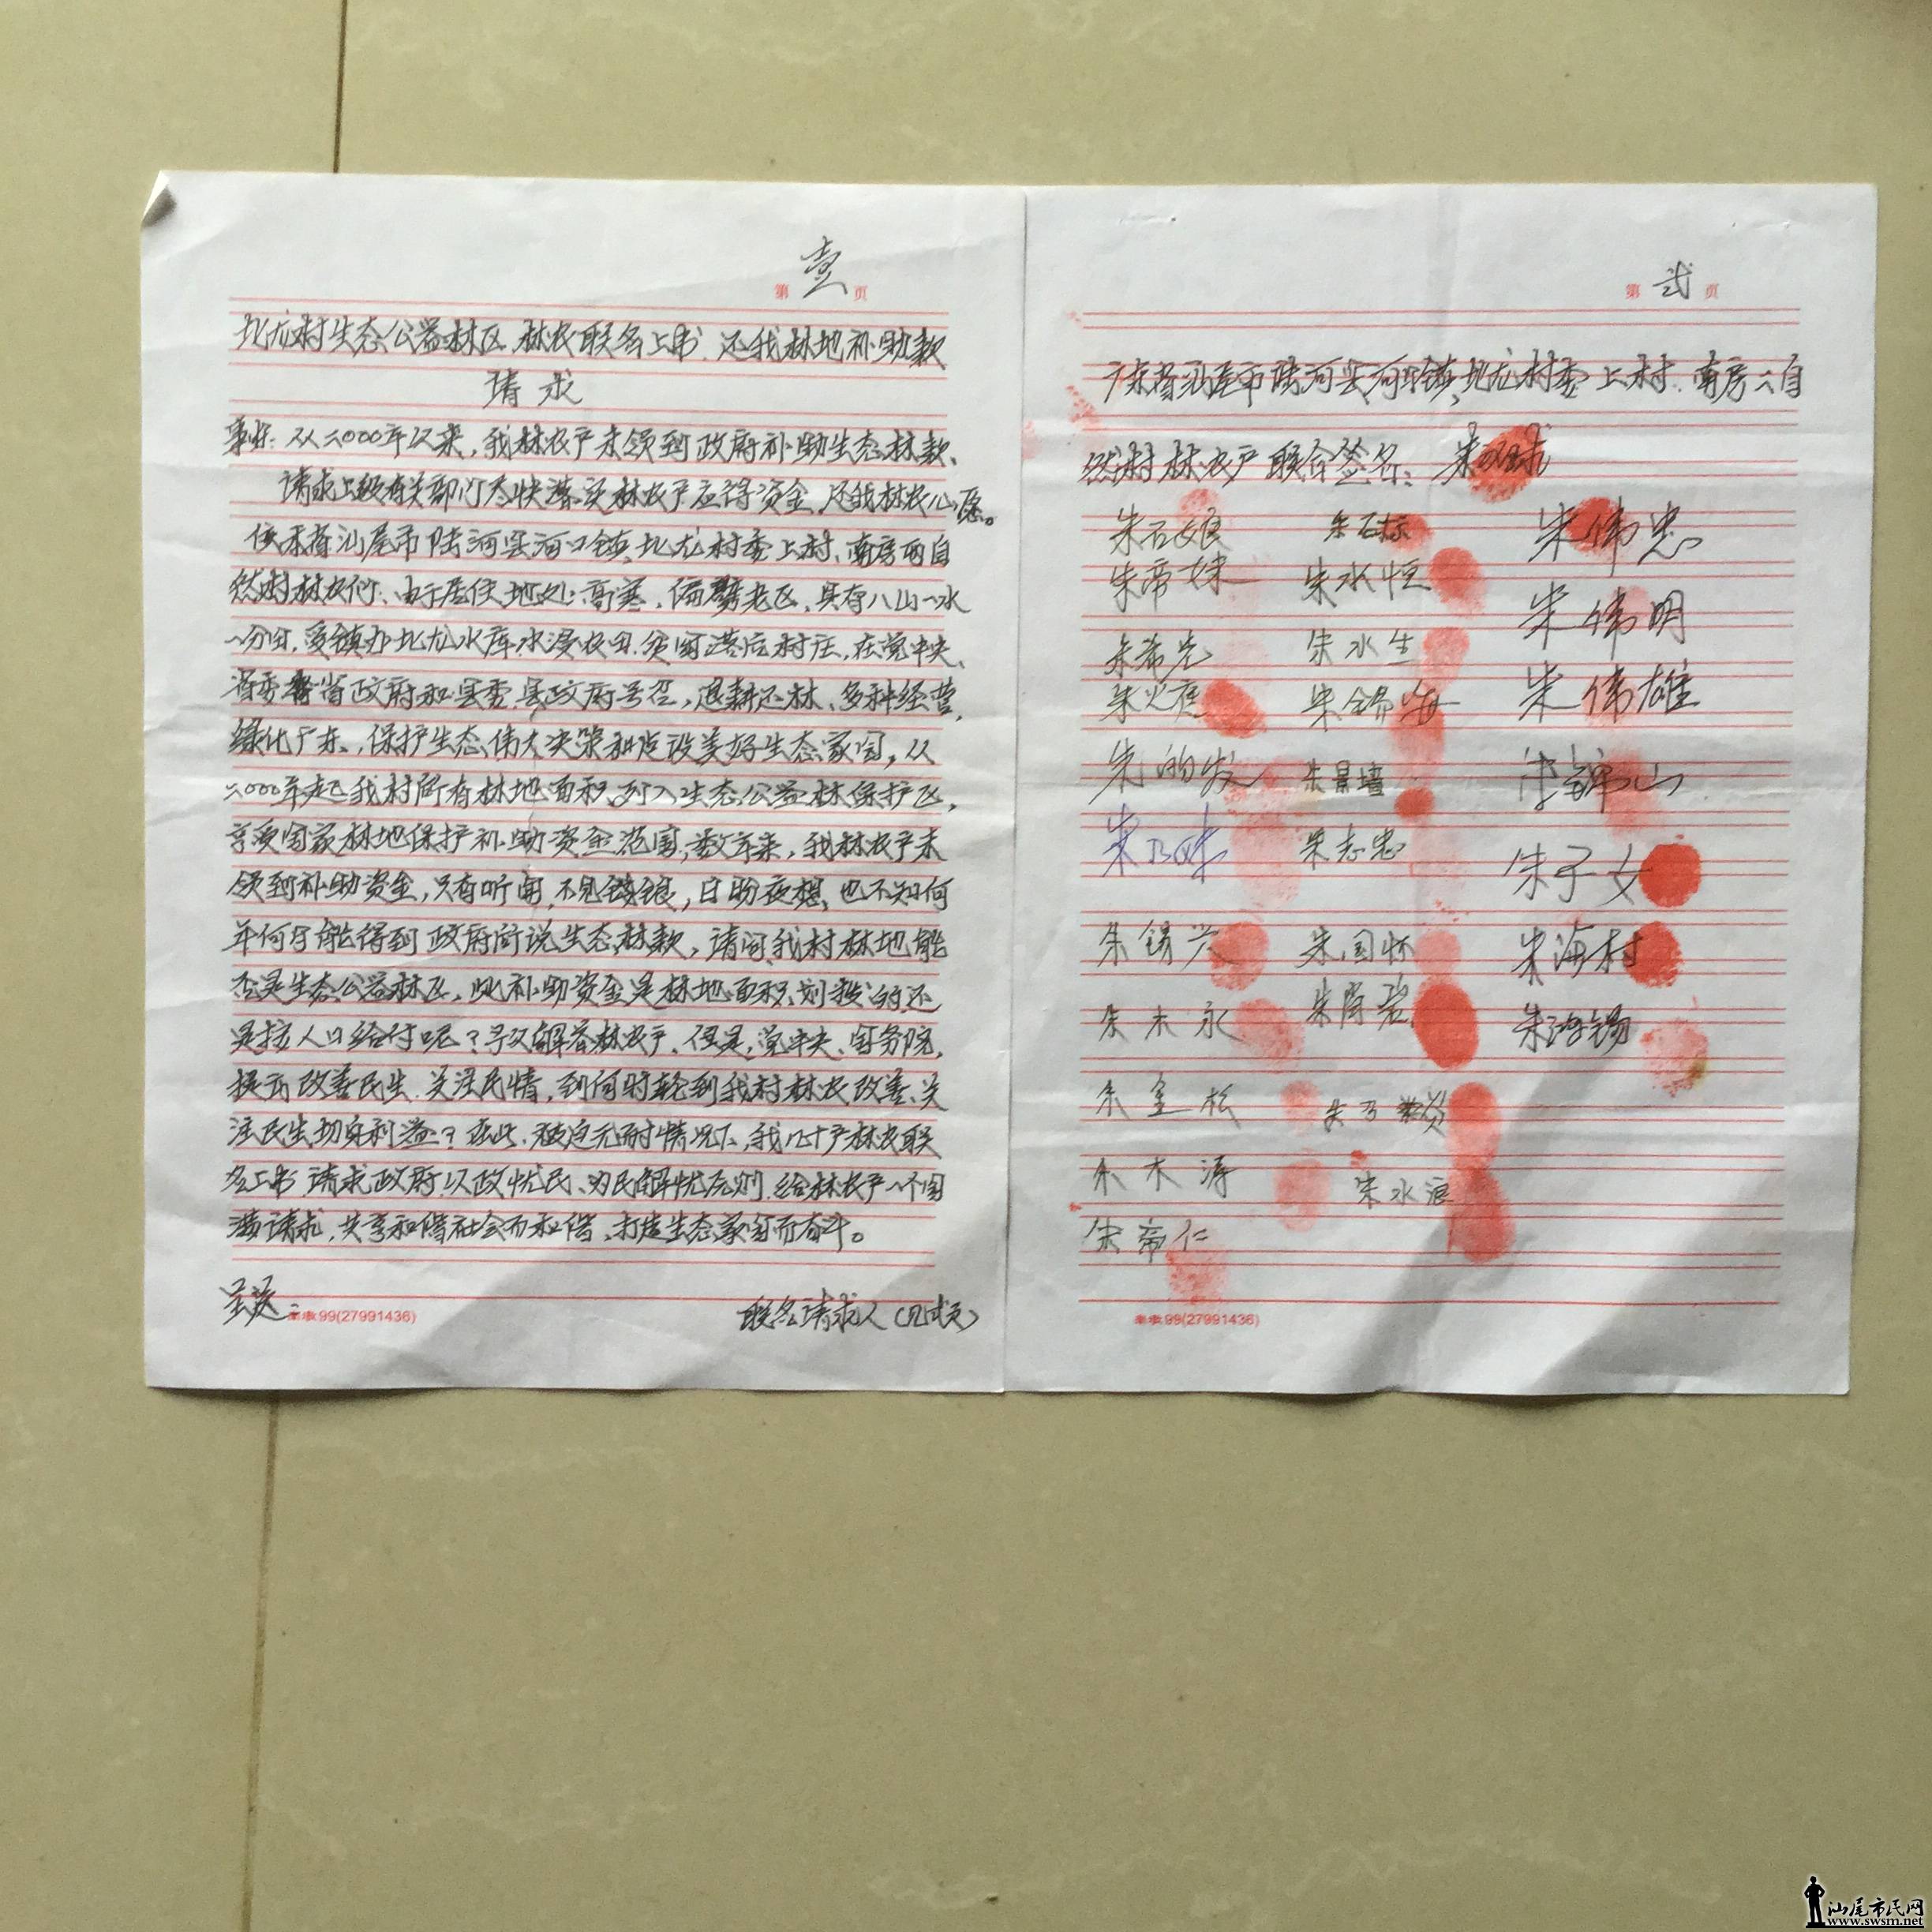 第壹页
北龙村生态公益林区、林农联名上书、还我林地补助款
请求
事由：从二000年以来，我林农户未领到政府补助生态林款、
请求上级有关部门尽快落实林农户应得资金，还我林农心愿。
广东省汕尾市陆河县河口镇北龙村委上村、南房两自
然村林农们、由于居住地处高寒、偏僻老区，具存八山一水
一分田，受镇办北龙水库水浸农田、贫穷落后村庄，在党中央、
省委省政府和县委县政府号召，退耕还林、多种经营，
绿化广东，保护生态伟大决策和建设美好生态家园，从
二000年起我村所有林地面积列入生态公益林保护区，
享受国家林地保护补助资金范围，数年来，我林农户未
领到补助资金，只有听闻，不见钱银，日盼夜想，也不知何
年何月能得到政府所说生态林款，请问我村林地能
否是生态公益林区，此补助资金是林地面积划拨的还
是按人口给付呢？ 解答林农户、但是，党中央、国务院，
提出改善民生、关注民情，到何时轮到我村林农改善、关
注民生切身利益？在此，被迫无耐情况下，我几十户林农联
名上书请求政府以政忧民、为民解忧原则，给林农户一个圆
满请求，共享和谐社会而和谐、打造生态家园而奋斗。
呈送：
联名请求人（见贰页）
99(27991436)
第贰页
广东省汕尾市陆河县河口镇北龙村委上村、南房二自
然村林农户联合签名：朱 球
朱石娘 朱石标 朱伟忠
朱帝妹 朱水恒 朱伟明
朱希先 朱水生 朱伟雄
朱火旺 朱锦海 朱锦山
朱的发 朱景墙 朱子女
朱乃妹 朱志忠 朱海村
朱锡兴 朱国怀 朱鸿锡
朱木永 朱岸岩
朱金松 朱乃 
朱木涛 朱水浪
朱帝仁
99(27991436)
汕尾市民网
www.swsm.net